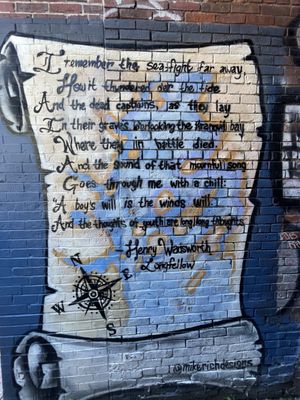 I remember the sea-fight far away,
How it thundered o'er the tide
And the dead captains, as they lay
In their graves, o'erlooking the tranquil bay
Where they in battle died.
And the sound of that mournful song
Goes through me with a chill:
'A boy's will is the winds will,
And the thoughts of youth are long, long thoughts,
Henry Wadsworth
Longfellow
N
E
W
S
@mikerichdesigns